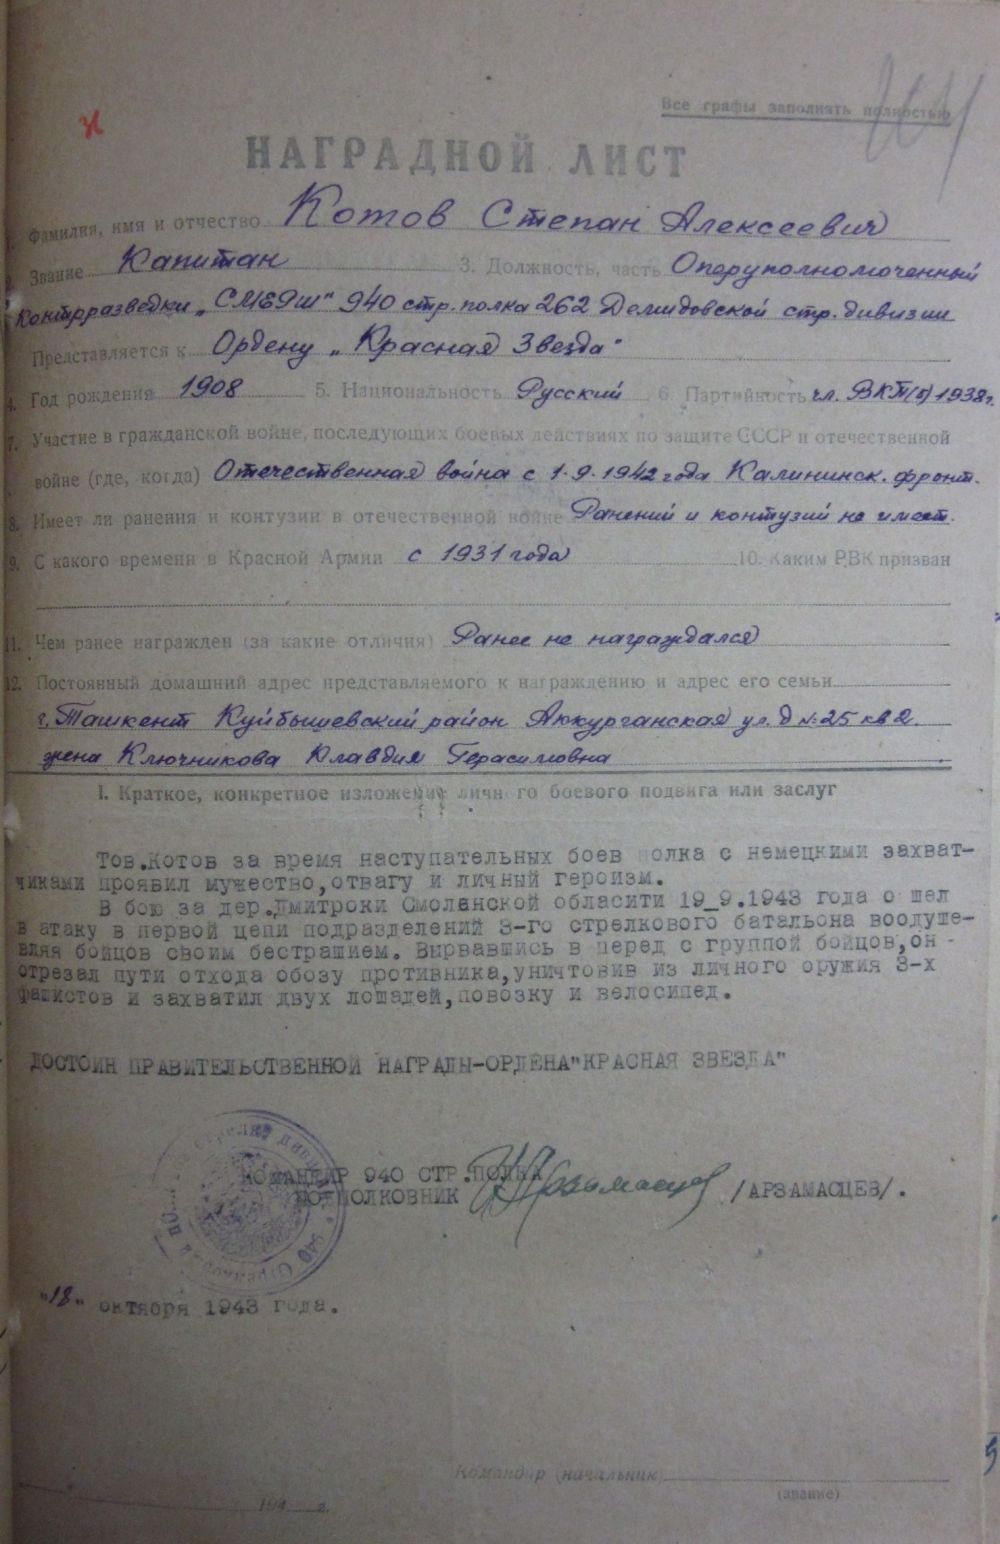 Все графы заполнять полностью
НАГРАДНОЙ ЛИСТ
1. Фамилия, имя и отчество Котов Степан Алексеевич
2. Звание Капитан 3. Должность, часть Оперуполномоченный
контрразведки „СМЕРШ" 940 стр. полка 262 Демидовской стр. дивизии
Представляется к Ордену „Красная Звезда"
4. Год рождения 1908 5. Национальность Русский 6. Партийность чл. ВКП(б) 1938г.
7. Участие в гражданской войне, последующих боевых действиях по защите СССР и отечественной
войне (где, когда) Отечественная война с 1.9.1942 года Калининск. фронт.
8. Имеет ли ранения и контузии в отечественной войне Ранений и контузий не имеет.
9. С какого времени в Красной Армии с 1931 года 10. Каким РВК призван
11. Чем ранее награжден (за какие отличия) Ранее не награждался
12. Постоянный домашний адрес представляемого к награждению и адрес его семьи
г. Ташкент Куйбышевский район Аккурганская ул. д № 25 кв 2.
жена Ключникова Клавдия Герасимовна
I. Краткое, конкретное изложение личного боевого подвига или заслуг
Тов.Котов за время наступательных боев полка с немецкими захват-
чиками проявил мужество,отвагу и личный героизм.
В бою за дер.Дмитроки Смоланской обласити 19_9.1943 года о шел
в атаку в первой цепи подразделений 3-го стрелкового батальона воодуше-
вляя бойцов своим бестрашием. Вырвавшись в перед с группой бойцов,он -
отрезал пути отхода обозу противника,уничтовив из личного оружия 3-х
фашистов и захватил двух лошадей,повозку и велосипед.
ДОСТОИН ПРАВИТЕЛЬСТВЕННОЙ НАГРАДЫ-ОРДЕНА"КРАСНАЯ ЗВЕЗДА"
КОМАНДИР 940 СТР.ПОЛКА
ПОДПОЛКОВНИК Арзамасцев /АРЗАМАСЦЕВ/.
"18" октября 1943 года.
Командир (начальник)
(звание)
194 г.